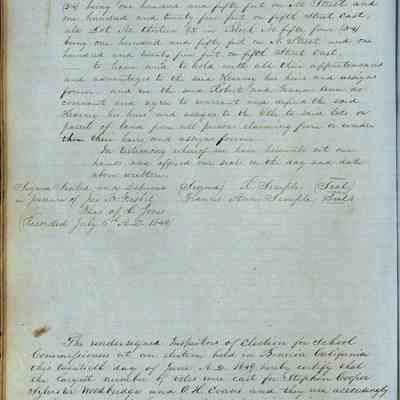 (54) being one hundred and fifty feet on M Street and
one hundred and twenty five feet on fifth Street East,
also Lot No thirteen 13 in Block No fifty four (54)
being one hundred and fifty feet on N Street and one
hundred and twenty five feet on fifth Street East,
to have and to hold with all their appurtenances
and advantages to the said Kearny his heirs and assigns
forever and we the said Robert and Frances Ann do
covenant and agree to warrant and defend the said
Kearny his heirs and assigns to the title to said lots or
parcels of land from all persons claiming from or under
them their heirs and assigns forever
In testimony whereof we have hereunto set our
hands and affixed our seals on the day and date
above written.
Signed Sealed and Delivered (Signed) R. Semple (Seal)
in presence of Frances Ann Semple Seal
of C. Jones
Recorded July 5th A.D. 1849
The undersigned Inspectors of Election for School
Commissioners at an election held in Benicia California
this twentieth day of June A.D. 1849 hereby certify that
the largest number of votes were cast for Stephen Cooper
Sylvester Woodbridge and D. H. Evans and they are accordingly